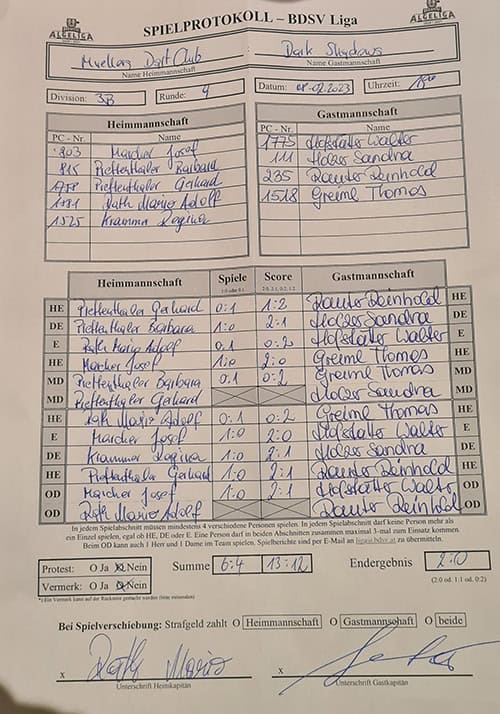 ALGELIGA
SPIELPROTOKOLL – BDSV Liga
ALGELIGA
Muellers Dart Club
Dark Shadows
Name Heimmannschaft
Name Gastmannschaft
Division: 3B
Runde: 4
Datum: 08.02.2023
Uhrzeit:
Heimmannschaft
Gastmannschaft
PC - Nr. Name
PC - Nr. Name
803 Marcher Josef
1775 Hofstätter Walter
815 Prettenthaler Barbara
111 Holzer Sandra
Prettenthaler Gerhard
235 Rauter Reinhold
Rath Mario Adolf
1518 Greiml Thomas
1525 Krammer Regina
Heimmannschaft Spiele Score Gastmannschaft
HE Prettenthaler Gerhard 0:1 1:3 Rauter Reinhold HE
DE Prettenthaler Barbara 1:0 2:1 Holzer Sandra DE
E Rath Mario Adolf 0:1 0:2 Hofstätter Walter E
HE Marcher Josef 1:0 2:0 Greiml Thomas HE
MD Prettenthaler Barbara 0:1 0:2 Greiml Thomas MD
MD Prettenthaler Gerhard Holzer Sandra MD
HE Rath Mario Adolf 0:1 0:2 Greiml Thomas HE
E Marcher Josef 1:0 2:0 Hofstätter Walter E
DE Krammer Regina 1:0 2:1 Holzer Sandra DE
HE Prettenthaler Gerhard 1:0 2:1 Rauter Reinhold HE
OD Marcher Josef 1:0 2:1 Hofstätter Walter OD
OD Rath Mario Adolf Rauter Reinhold OD
In jedem Spielabschnitt müssen mindestens 4 verschiedene Personen spielen. In jedem Spielabschnitt darf keine Person mehr als
ein Einzel spielen, egal ob HE, DE oder E. Eine Person darf in beiden Abschnitten zusammen maximal 3-mal zum Einsatz kommen.
Beim OD kann auch 1 Herr und 1 Dame im Team spielen. Spielberichte sind per E-Mail an liga@bdsv.at zu übermitteln.
Protest: O Ja O Nein
Summe 6:4 13:12
Endergebnis 2:0
Vermerk: O Ja O Nein
(2:0 od. 1:1 od. 0:2)
Bei Spielverschiebung: Strafgeld zahlt O Heimmannschaft O Gastmannschaft O beide
x Rath Mario
x
Unterschrift Heimkapitän
Unterschrift Gastkapitän